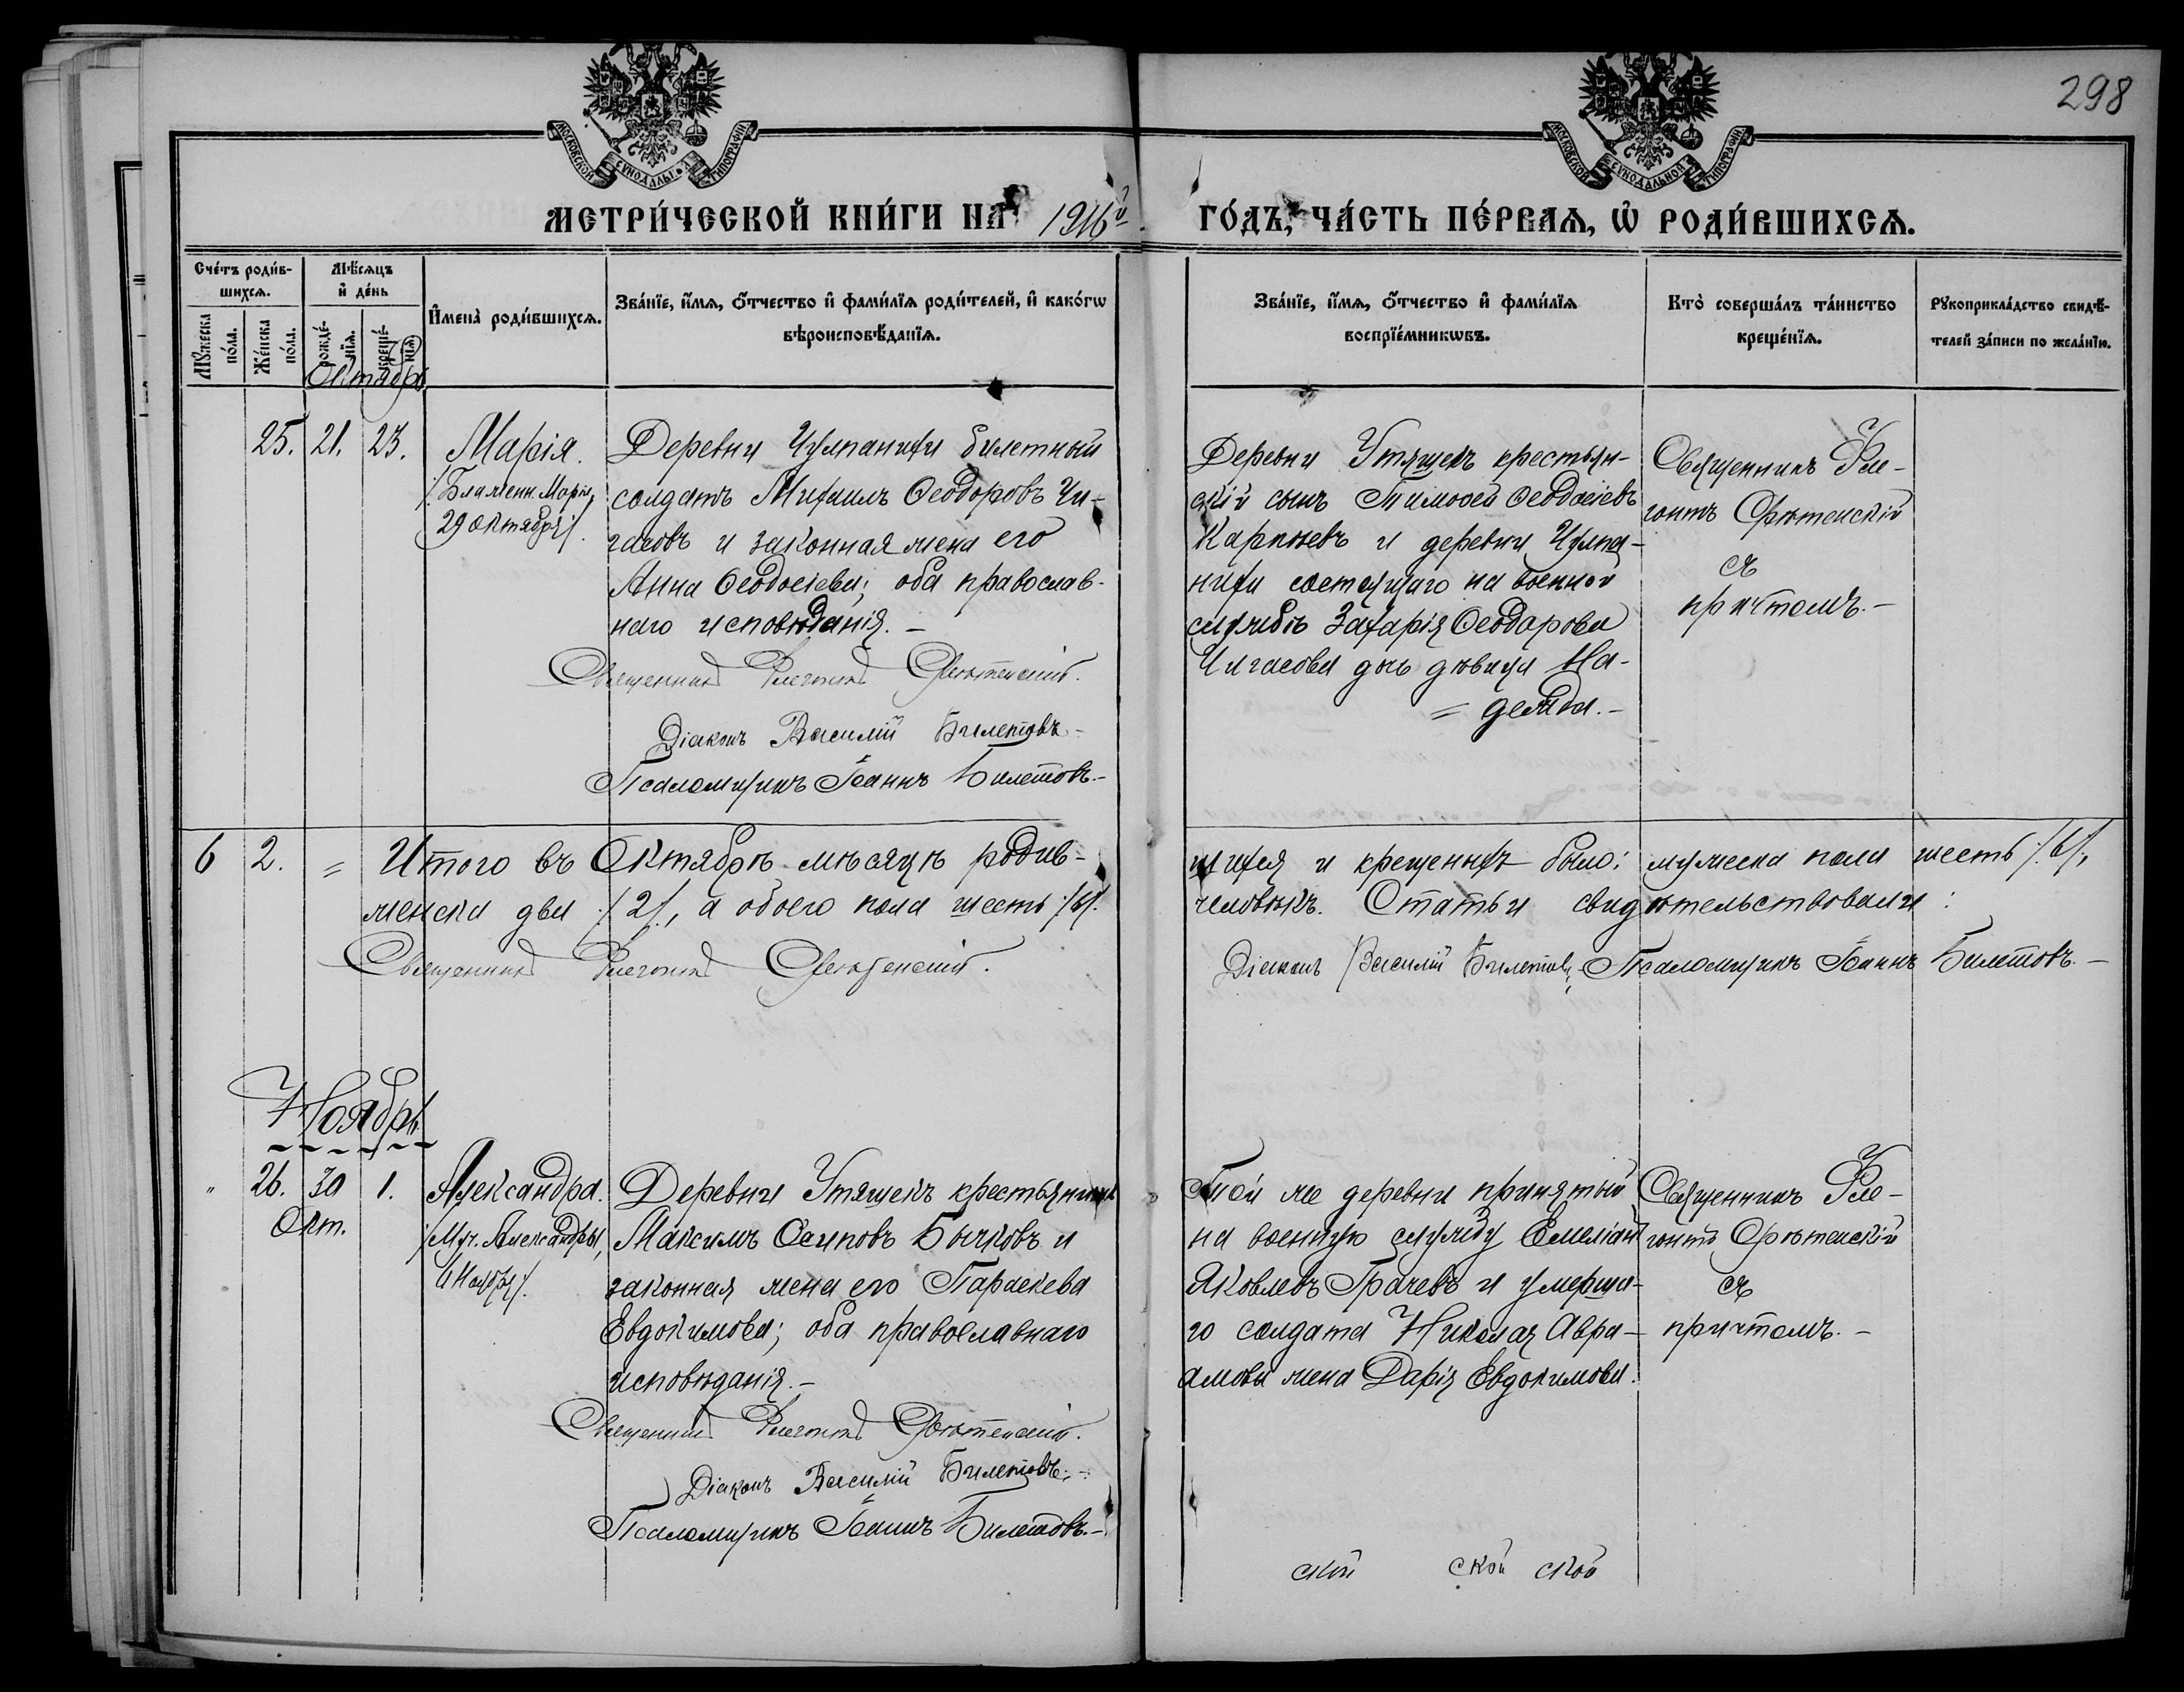 298
МОСКОВСКОЙ СѴНОДАЛЬНОЙ ТИПОГРАФІИ
МОСКОВСКОЙ СѴНОДАЛЬНОЙ ТИПОГРАФІИ
МЕТРИ́ЧЕСКОЙ КНИ́ГИ НА 1916й ГО́ДЪ, ЧА́СТЬ ПЕ́РВАѦ, Ѡ҆ РОДИ́ВШИХСѦ.
Сче́тъ роди́в-
шихсѧ.
Мꙋ́жеска по́ла.
Же́нска по́ла.
Мѣ́сѧцъ
и҆ де́нь
рожде́-
нїѧ.
креще́-
нїѧ
Октябрь
И҆мена̀ роди́вшихсѧ.
Зва́нїе, и҆́мѧ, ѻ҆́тчество и҆ фами́лїѧ роди́телей, и҆ како́гѡ
вѣроисповѣ́данїѧ.
Зва́нїе, и҆́мѧ, ѻ҆́тчество и҆ фами́лїѧ
воспрїе́мникѡвъ.
Кто̀ соверша́лъ та́инство
креще́нїѧ.
Рꙋкоприкла́дство свидѣ́-
телей за́писи по жела́нїю.
25. 21. 23. Марія.
/Блаженн. Маріи,
29 Октября/.
Деревни Чулпанихи билетный
солдатъ Михаилъ Ѳеодоровъ Чи-
гасовъ и законная жена его
Анна Ѳеодосіева; оба православ-
наго исповѣданія.–
Священникъ Флегонтъ Срѣтенскій.
Діаконъ Василій Билетовъ.–
Псаломщикъ Іоаннъ Билетовъ.–
Деревни Утяшекъ крестьян-
скій сынъ Тимоѳей Ѳеодосіевъ
Карпѣевъ и деревни Чулпа-
нихи состоящаго на военной
службѣ Захарія Ѳеодорова
Чигасова дочь дѣвица На-
= дежда.–
Священникъ Фле-
гонтъ Срѣтенскій
съ
причтомъ.–
6 2. = Итого въ Октябрѣ мѣсяцѣ родив-
шихся и крещенныхъ было: мужеска пола шесть /6/,
женска два /2/, а обоего пола шесть /6/.
человѣкъ. Статьи свидѣтельствовали:
Священникъ Флегонтъ Срѣтенскій.
Діаконъ Василій Билетовъ, Псаломщикъ Іоаннъ Билетовъ.–
Ноябрь
" 26. 30 1. Александра.
Окт.
/Муч. Александры,
6 Ноября/.
Деревни Утяшекъ крестьянинъ
Максимъ Осиповъ Бычковъ и
законная жена его Параскева
Евдокимова; оба православнаго
исповѣданія.–
Священникъ Флегонтъ Срѣтенскій.
Діаконъ Василій Билетовъ.–
Псаломщикъ Іоаннъ Билетовъ.–
Той же деревни принятый
на военную службу Емеліанъ
Яковлевъ Грачевъ и умерша-
го солдата Николая Авра-
амова жена Дарія Евдокимова.
Священникъ Фле-
гонтъ Срѣтенскій
съ
причтомъ.–
ской ской ской